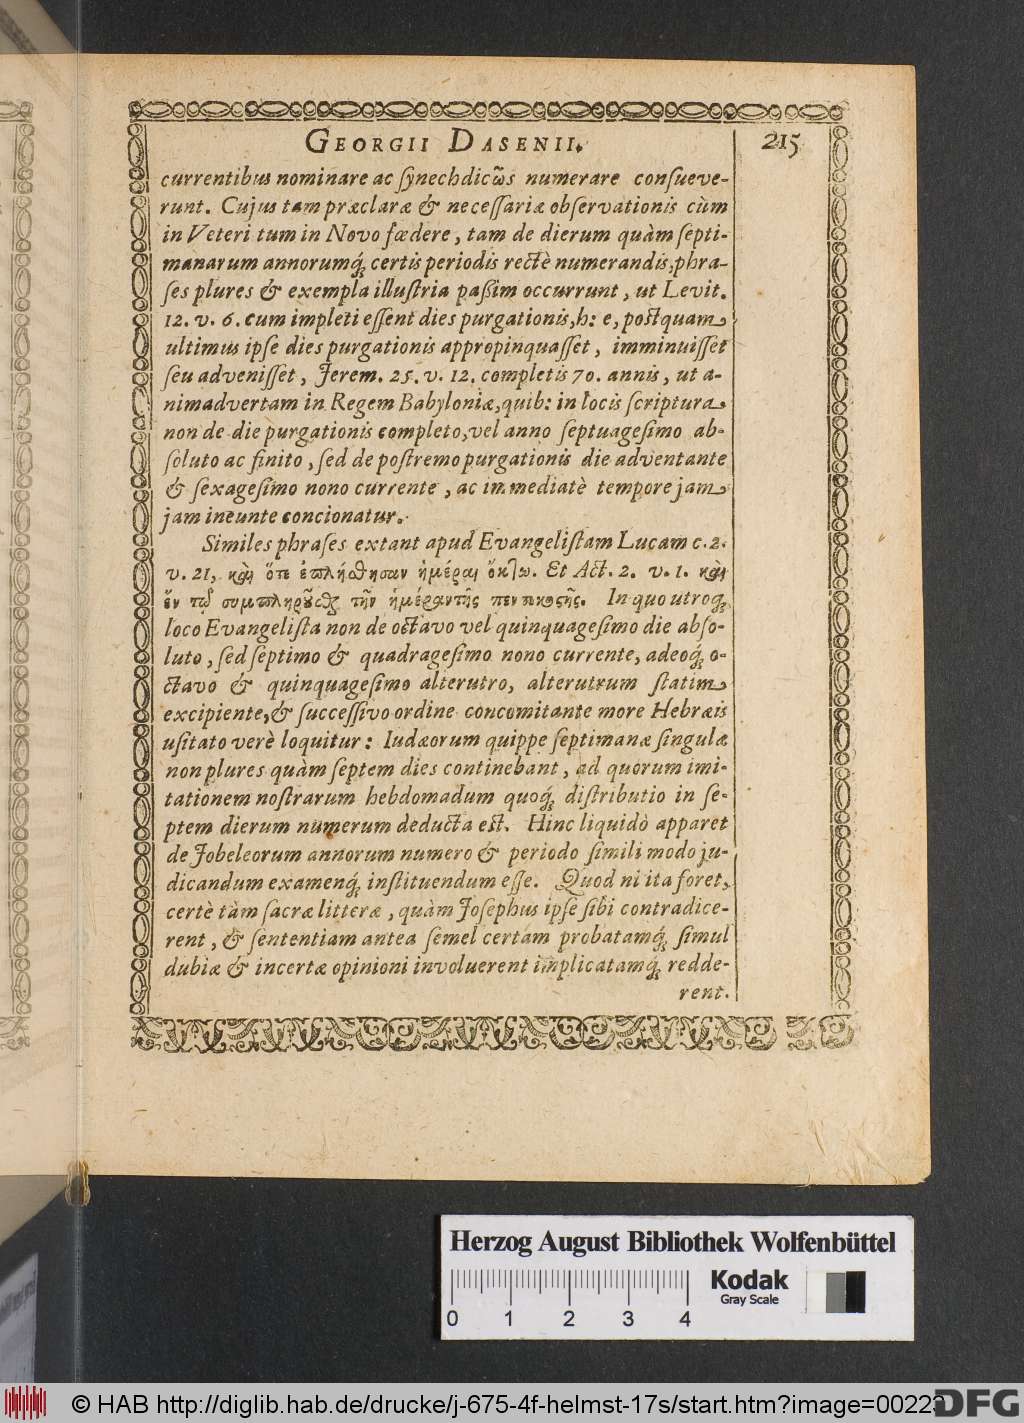 GEORGII DASENII. 215
currentibus nominare ac ſynechdicω̃s numerare conſueve-
runt. Cujus tam præclaræ & neceſſariæ obſervationis cùm
in Veteri tum in Novo fœdere, tam de dierum quàm ſepti-
manarum annorumq́; certis periodis rectè numerandis, phra-
ſes plures & exempla illuſtria paßim occurrunt, ut Levit.
12. v. 6. cum impleti eſſent dies purgationis, h: e, poſtquam
ultimus ipſe dies purgationis appropinquaſſet, imminuiſſet
ſeu adveniſſet, Jerem. 25. v. 12. completis 70. annis, ut a-
nimadvertam in Regem Babyloniæ, quib: in locis ſcriptura
non de die purgationis completo, vel anno ſeptuageſimo ab-
ſoluto ac finito, ſed de poſtremo purgationis die adventante
& ſexageſimo nono currente, ac immediatè tempore jam
jam ineunte concionatur.
Similes phraſes extant apud Evangeliſtam Lucam c. 2.
v. 21, καὶ ὅτε ἐπλήσθησαν ἡμέραι ὅκτω. Et Act. 2. v. 1. καὶ
ἔν τῷ συμπληροῦσθαι τὴν ἡμέραν τῆς πεντηκοςῆς. In quo utroq́;
loco Evangeliſta non de octavo vel quinquageſimo die abſo-
luto, ſed ſeptimo & quadrageſimo nono currente, adeoq́; o-
ctavo & quinquageſimo alterutro, alterutrum ſtatim
excipiente, & ſucceſſivo ordine concomitante more Hebræis
uſitato verè loquitur: Iudæorum quippe ſeptimanæ ſingulæ
non plures quàm ſeptem dies continebant, ad quorum imi-
tationem noſtrarum hebdomadum quoq́; diſtributio in ſe-
ptem dierum numerum deducta eſt. Hinc liquidò apparet
de Jobeleorum annorum numero & periodo ſimili modo ju-
dicandum examenq́; inſtituendum eſſe. Quod ni ita foret,
certè tàm ſacræ litteræ, quàm Joſephus ipſe ſibi contradice-
rent, & ſententiam antea ſemel certam probatamq́; ſimul
dubiæ & incertæ opinioni involuerent implicatamq́; redde-
rent.
Herzog August Bibliothek Wolfenbüttel
Kodak
Gray Scale
0 1 2 3 4
© HAB http://diglib.hab.de/drucke/j-675-4f-helmst-17s/start.htm?image=00223
DFG